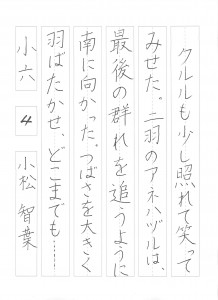 クルルも少し照れて笑って
みせた。二羽のアネハヅルは、
最後の群れを追うように
南に向かった。つばさを大きく
羽ばたかせ、どこまでも……
小六 4 小松 智葉